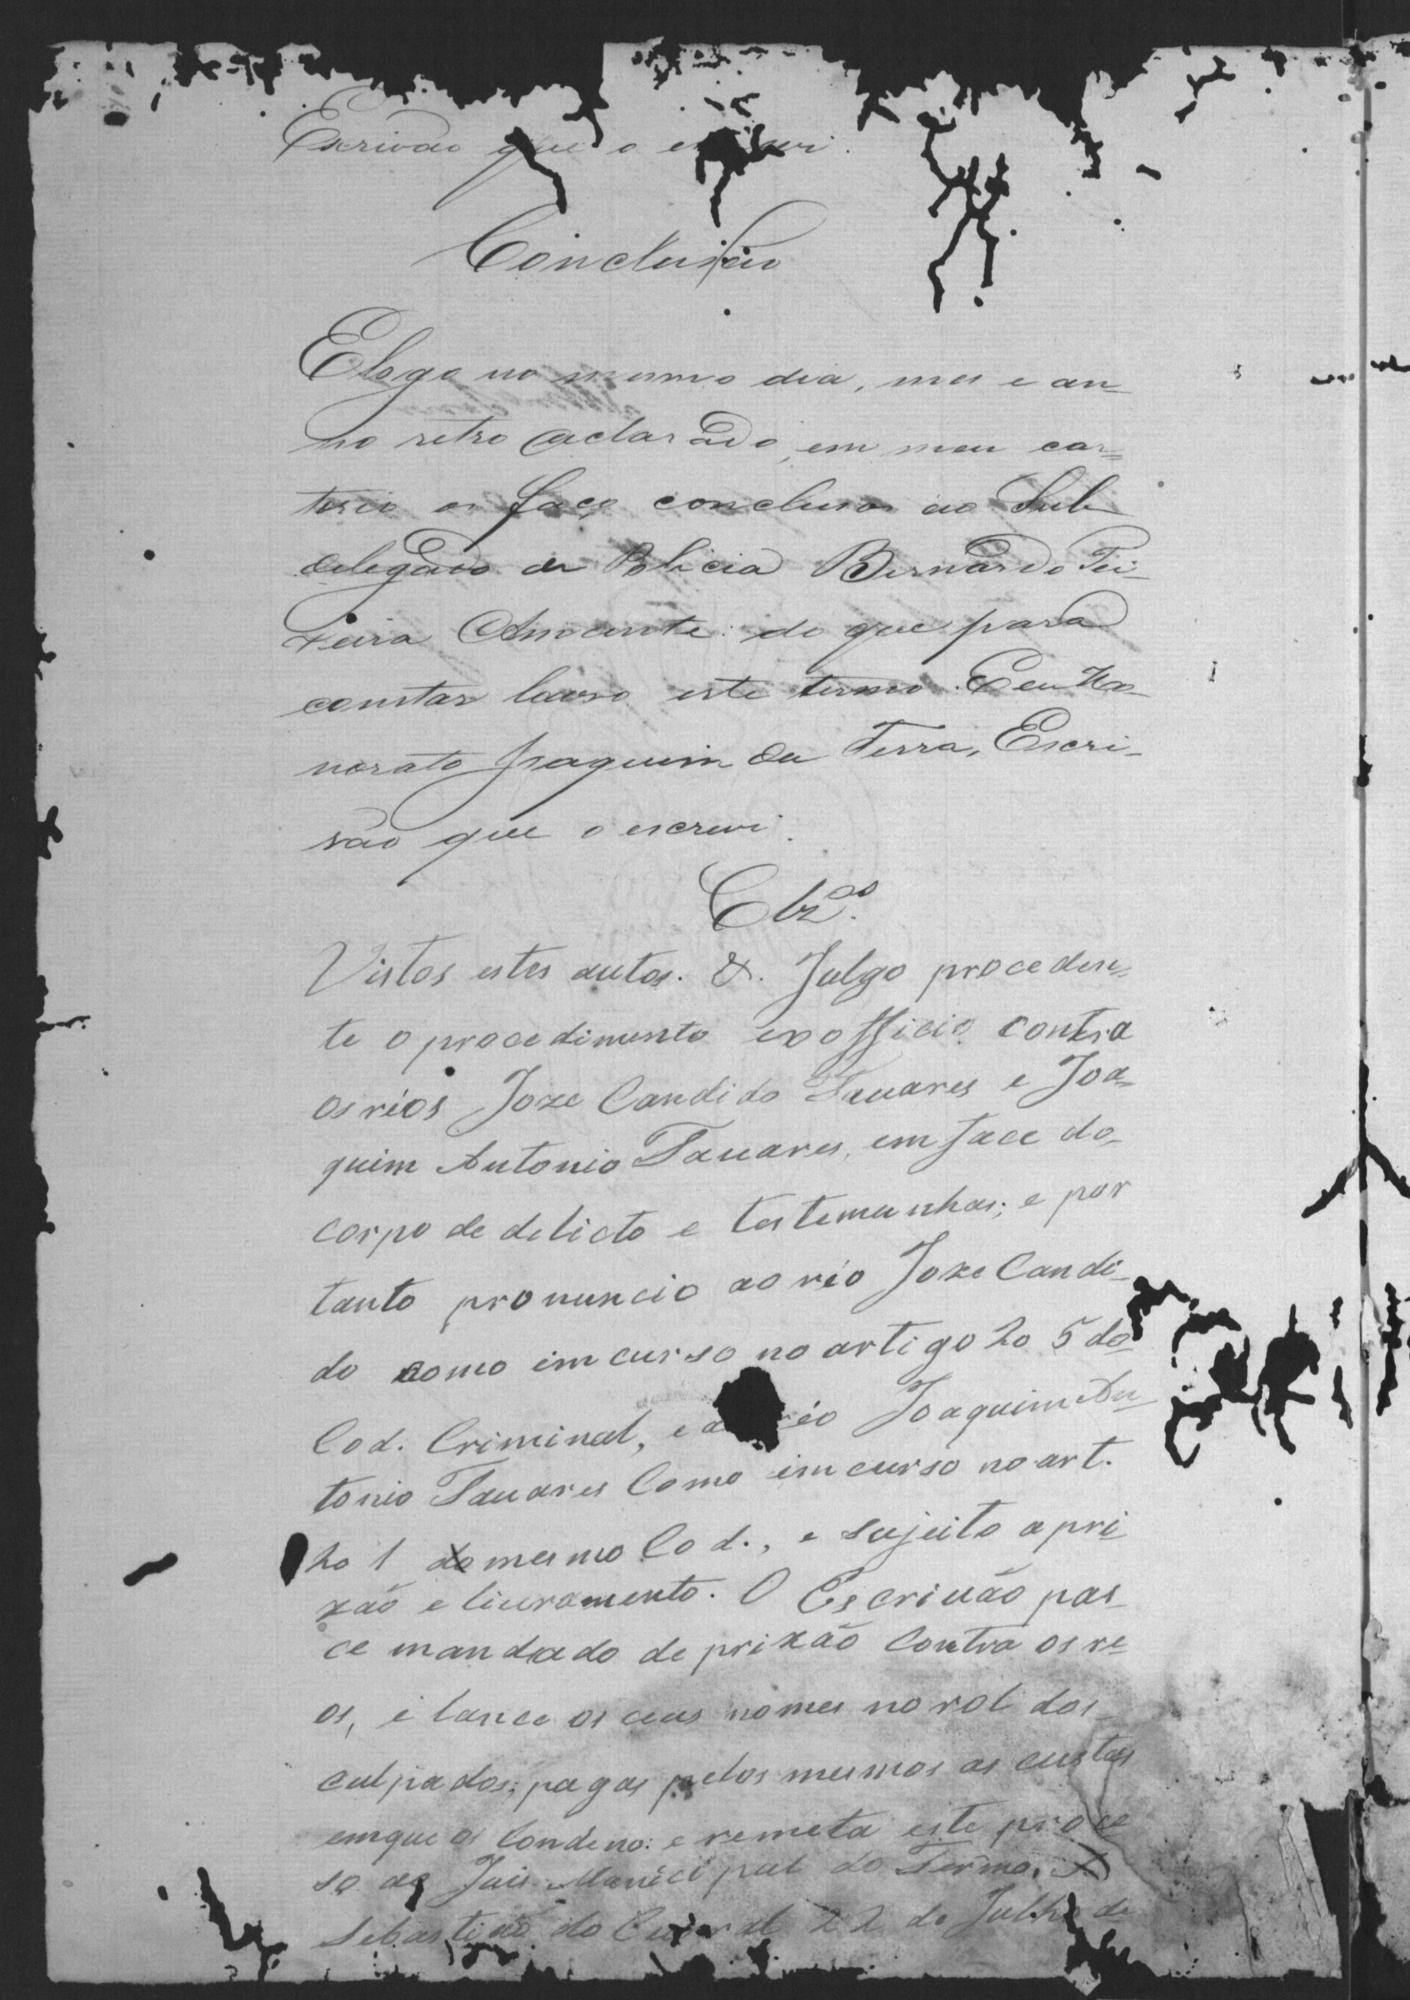 Escrivão que o escrevi.
Conclusão
E logo no mesmo dia, mes e an-
no retro declarado, em meu car=
torio os faço conclusos ao Sub
delegado de Policia Bernardo Tei-
xeira Amarante: do que para
constar lavro este termo. E eu Ho-
norato Joaquim da Terra, Escri-
vão que o escrevi.
Clzo.
Vistos estes autos. &. Julgo proceden=
te o procedimento exofficio contra
os réos Joze Candido Tavares e Joa=
quim Antonio Tavares, em face do
corpo de delicto e testemunhas; e por
tanto pronuncio ao réo Joze Candi-
do como imcurso no artigo 205 do
Cod. Criminal, e ao réo Joaquim An-
tonio Tavares Como imcurso no art.
201 do mesmo Cod., e sujeito a pri
zão e livramento. O Escrivão pas-
ce mandado de prizão Contra os re-
os, e lance os ceus nomes no rol dos
culpados; pagas pelos mesmos as custas
emque os Condeno: e remeta este proce
so ao Juis Municipal do Termo. S.
Sebastião do 22 de Julho de